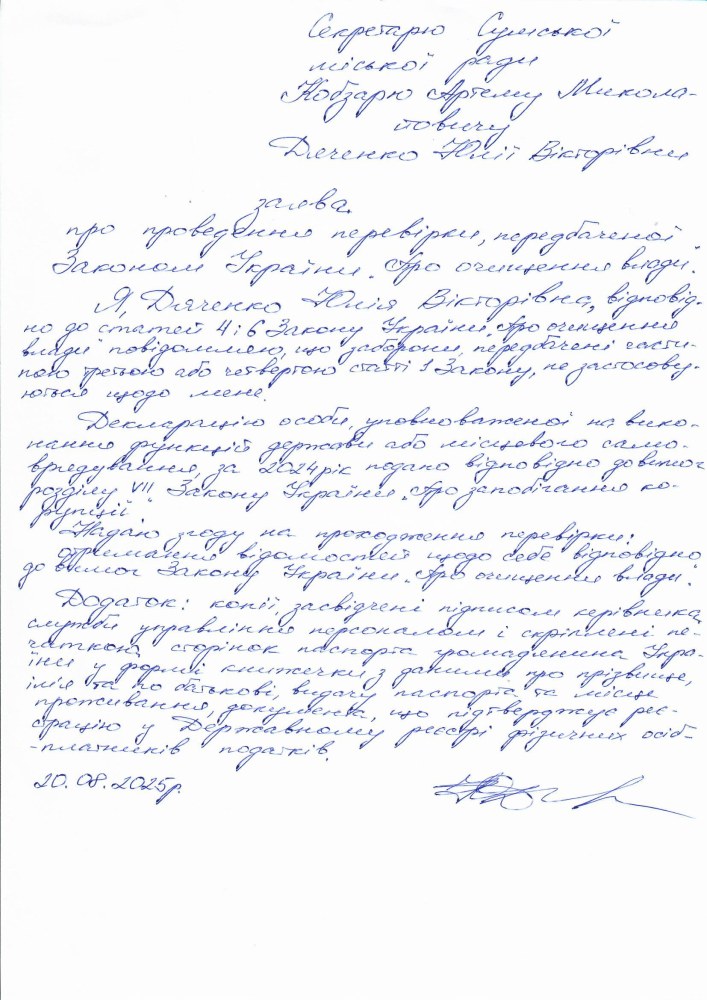 Секретарю Сумської
міської ради
Кобзарю Артему Микола-
йовичу
Дяченко Юлії Вікторівни
заява
про проведення перевірки, передбаченої
Законом України „Про очищення влади".
Я, Дяченко Юлія Вікторівна, відповід-
но до статей 4 і 6 Закону України „Про очищення
влади" повідомляю, що заборони, передбачені части-
ною третьою або четвертою статті 1 Закону, не застосову-
ються щодо мене.
Декларацію особи, уповноваженої на вико-
нання функцій держави або місцевого само-
врядування, за 2024 рік подано відповідно до вимог
розділу VII Закону України „Про запобігання ко-
рупції".
Надаю згоду на проходження перевірки;
отримання відомостей щодо себе відповідно
до вимог Закону України „Про очищення влади".
Додаток: копії, засвідчені підписом керівника
служби управління персоналом і скріплені пе-
чаткою, сторінок паспорта громадянина Укра-
їни у формі книжечки з даними про прізвище,
ім'я та по батькові, видачу паспорта та місце
проживання, документа, що підтверджує реє-
страцію у Державному реєстрі фізичних осіб-
-платників податків.
20.08.2025р.